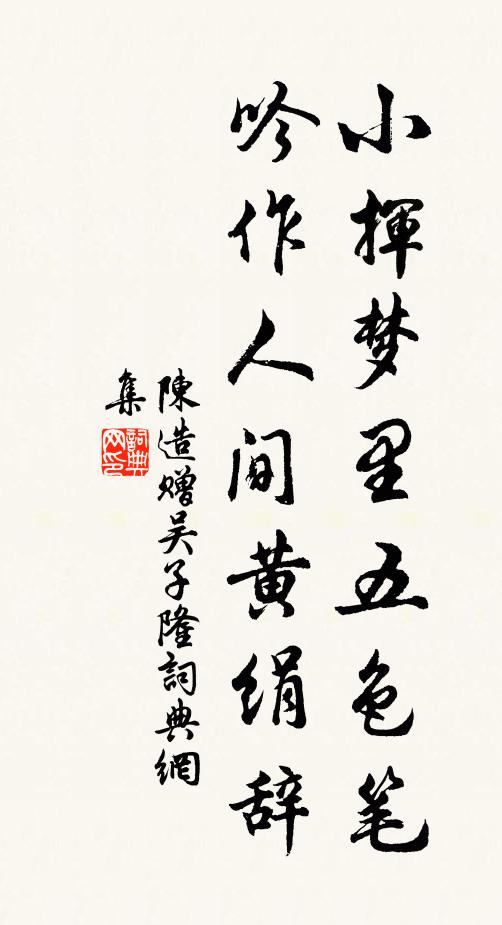 小揮梦里五色笔
吟作人间黄绢辞
陳造赠吴子隆詞典網
集
詞典网印